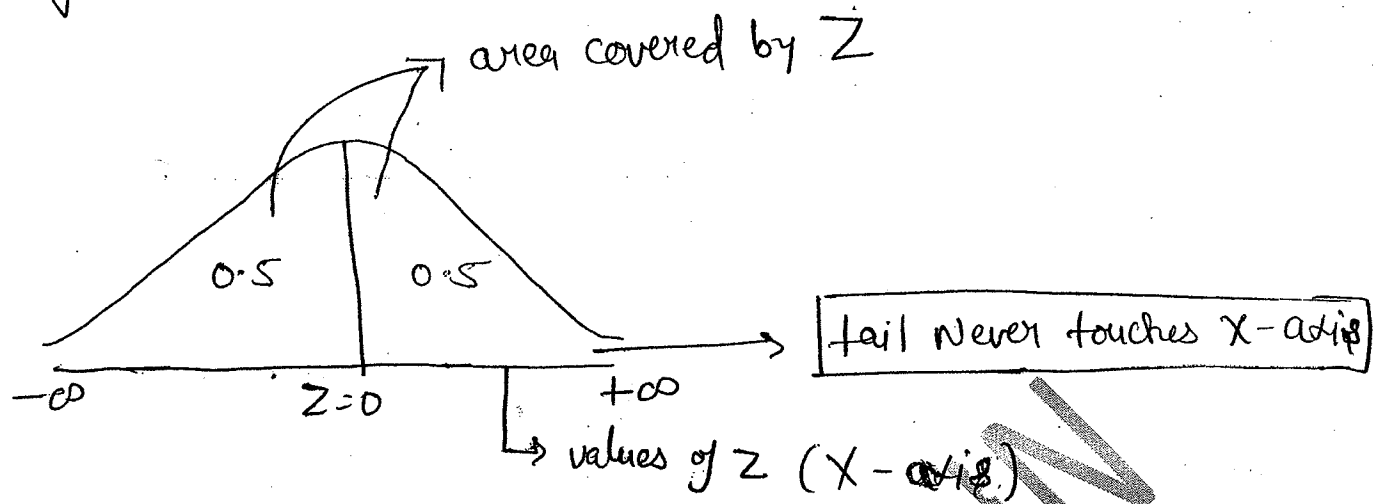 area covered by Z
0.5 0.5
tail Never touches X-axis
-∞ Z=0 +∞
values of z (X-axis)